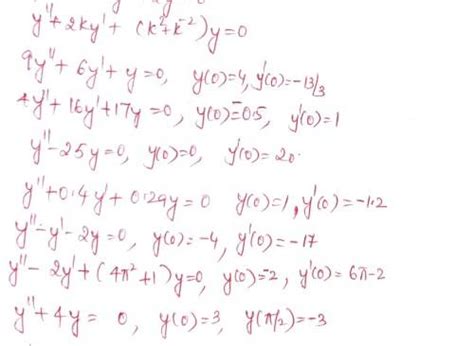 y''+2ky'+ (k²+k⁻²)y=0
9y''+6y'+y=0, y(0)=4, y'(0)=-13/3
4y''+16y'+17y=0, y(0)=-0.5, y'(0)=1
y''-25y=0, y(0)=0, y'(0)=20.
y''+0.4y'+0.29y=0 y(0)=1, y'(0)=-1.2
y''-y'-2y=0, y(0)=-4, y'(0)=-17
y''-2y'+(4π²+1)y=0, y(0)=-2, y'(0)=6π-2
y''+4y= 0, y(0)=3, y(π/2)=-3